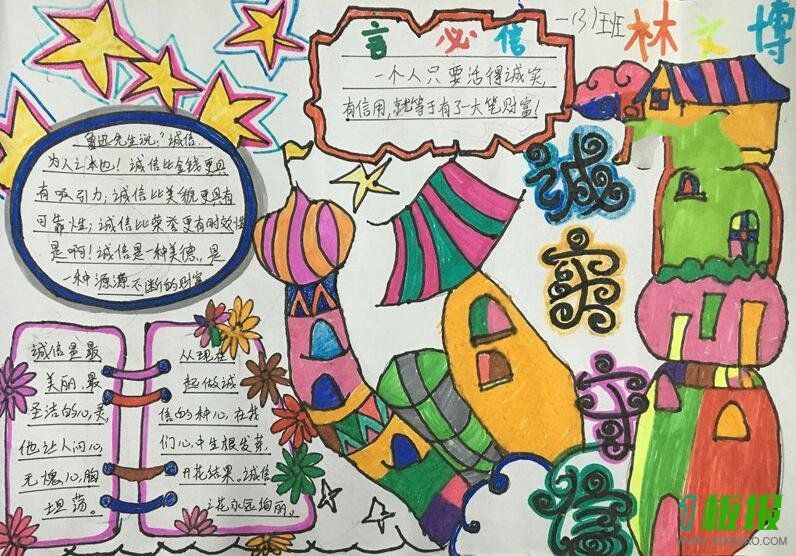 言必信
一个人只要活得诚实,
有信用,就等于有了一大笔财富!
一(3)班 林文博
鲁迅先生说:“诚信
为人之本也!诚信比金钱更具
有吸引力;诚信比美貌更具有
可靠性;诚信比荣誉更有时效性
是啊!诚信是一种美德,是
一种源源不断的财富
诚实守信
诚信是最
美丽,最
圣洁的心灵,
他让人问心
无愧,心胸
坦荡。
从现在
起做诚
信的种心,在我
们心中生根发芽,
开花结果。诚信
之花永远绚丽。
1板报
WWW.1BANBAO.COM